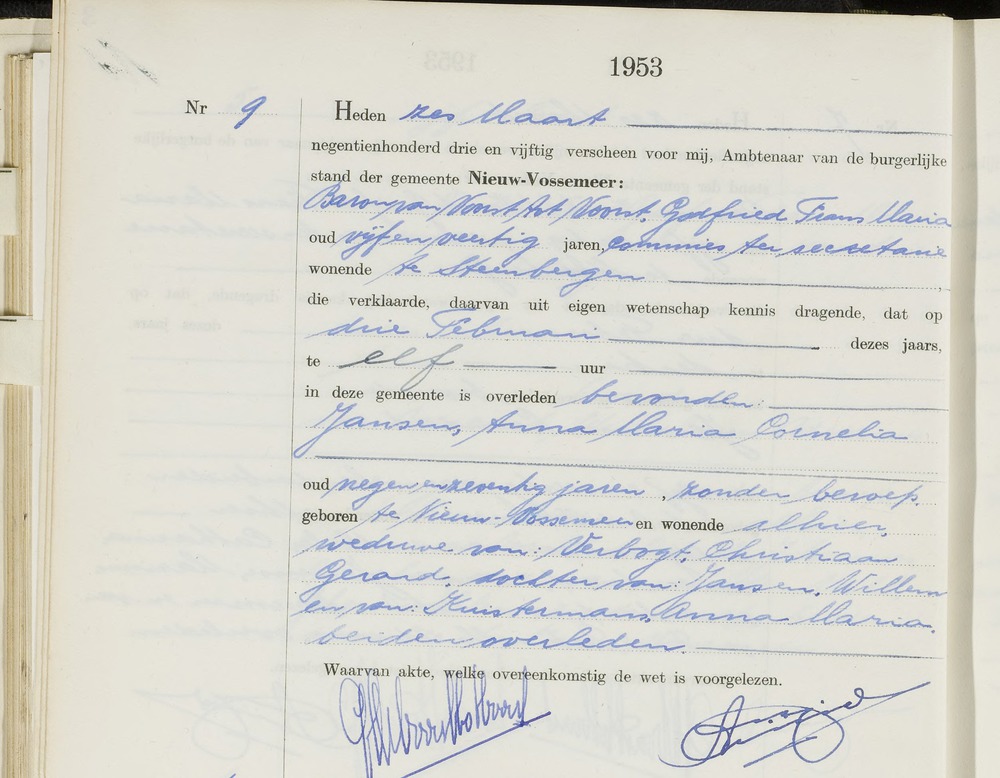 1953
Nr 9 Heden zes Maart
negentienhonderd drie en vijftig verscheen voor mij, Ambtenaar van de burgerlijke
stand der gemeente Nieuw-Vossemeer:
Baron van Voorst tot Voorst, Godfried Frans Maria
oud vijf en veertig jaren, commies ter secretarie
wonende te Steenbergen
die verklaarde, daarvan uit eigen wetenschap kennis dragende, dat op
drie Februari dezes jaars,
te elf uur
in deze gemeente is overleden bevonden:
Jansen, Anna Maria Cornelia
oud negen en zeventig jaren, zonder beroep.
geboren te Nieuw-Vossemeer en wonende alhier,
weduwe van: Verbogt, Christiaan
Gerard, dochter van: Jansen, Willem
en van: Kuistermans, Anna Maria.
beiden overleden.
Waarvan akte, welke overeenkomstig de wet is voorgelezen.